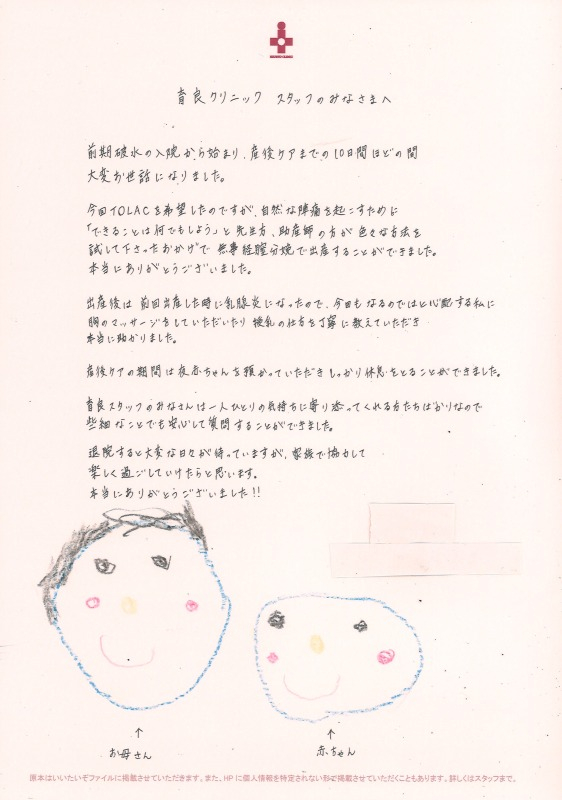 育良クリニック スタッフのみなさまへ
前期破水の入院から始まり、産後ケアまでの10日間ほどの間
大変お世話になりました。
今回TOLACを希望したのですが、自然な陣痛を起こすために
「できることは何でもしよう」と先生方、助産師の方が色々な方法を
試して下さったおかげで無事経腟分娩で出産することができました。
本当にありがとうございました。
出産後は前回出産した時に乳腺炎になったので、今回もなるのではと心配する私に
胸のマッサージをしていただいたり授乳の仕方を丁寧に教えていただき
本当に助かりました。
産後ケアの期間は夜赤ちゃんを預かっていただきしっかり休息をとることができました。
育良スタッフのみなさんは一人ひとりの気持ちに寄り添ってくれる方たちばかりなので
些細なことでも安心して質問することができました。
退院すると大変な日々が待っていますが、家族で協力して
楽しく過ごしていけたらと思います。
本当にありがとうございました!!
↑ ↑
お母さん 赤ちゃん
原本はいいたいぞファイルに掲載させていただきます。また、HPに個人情報を特定されない形で掲載させていただくこともあります。詳しくはスタッフまで。